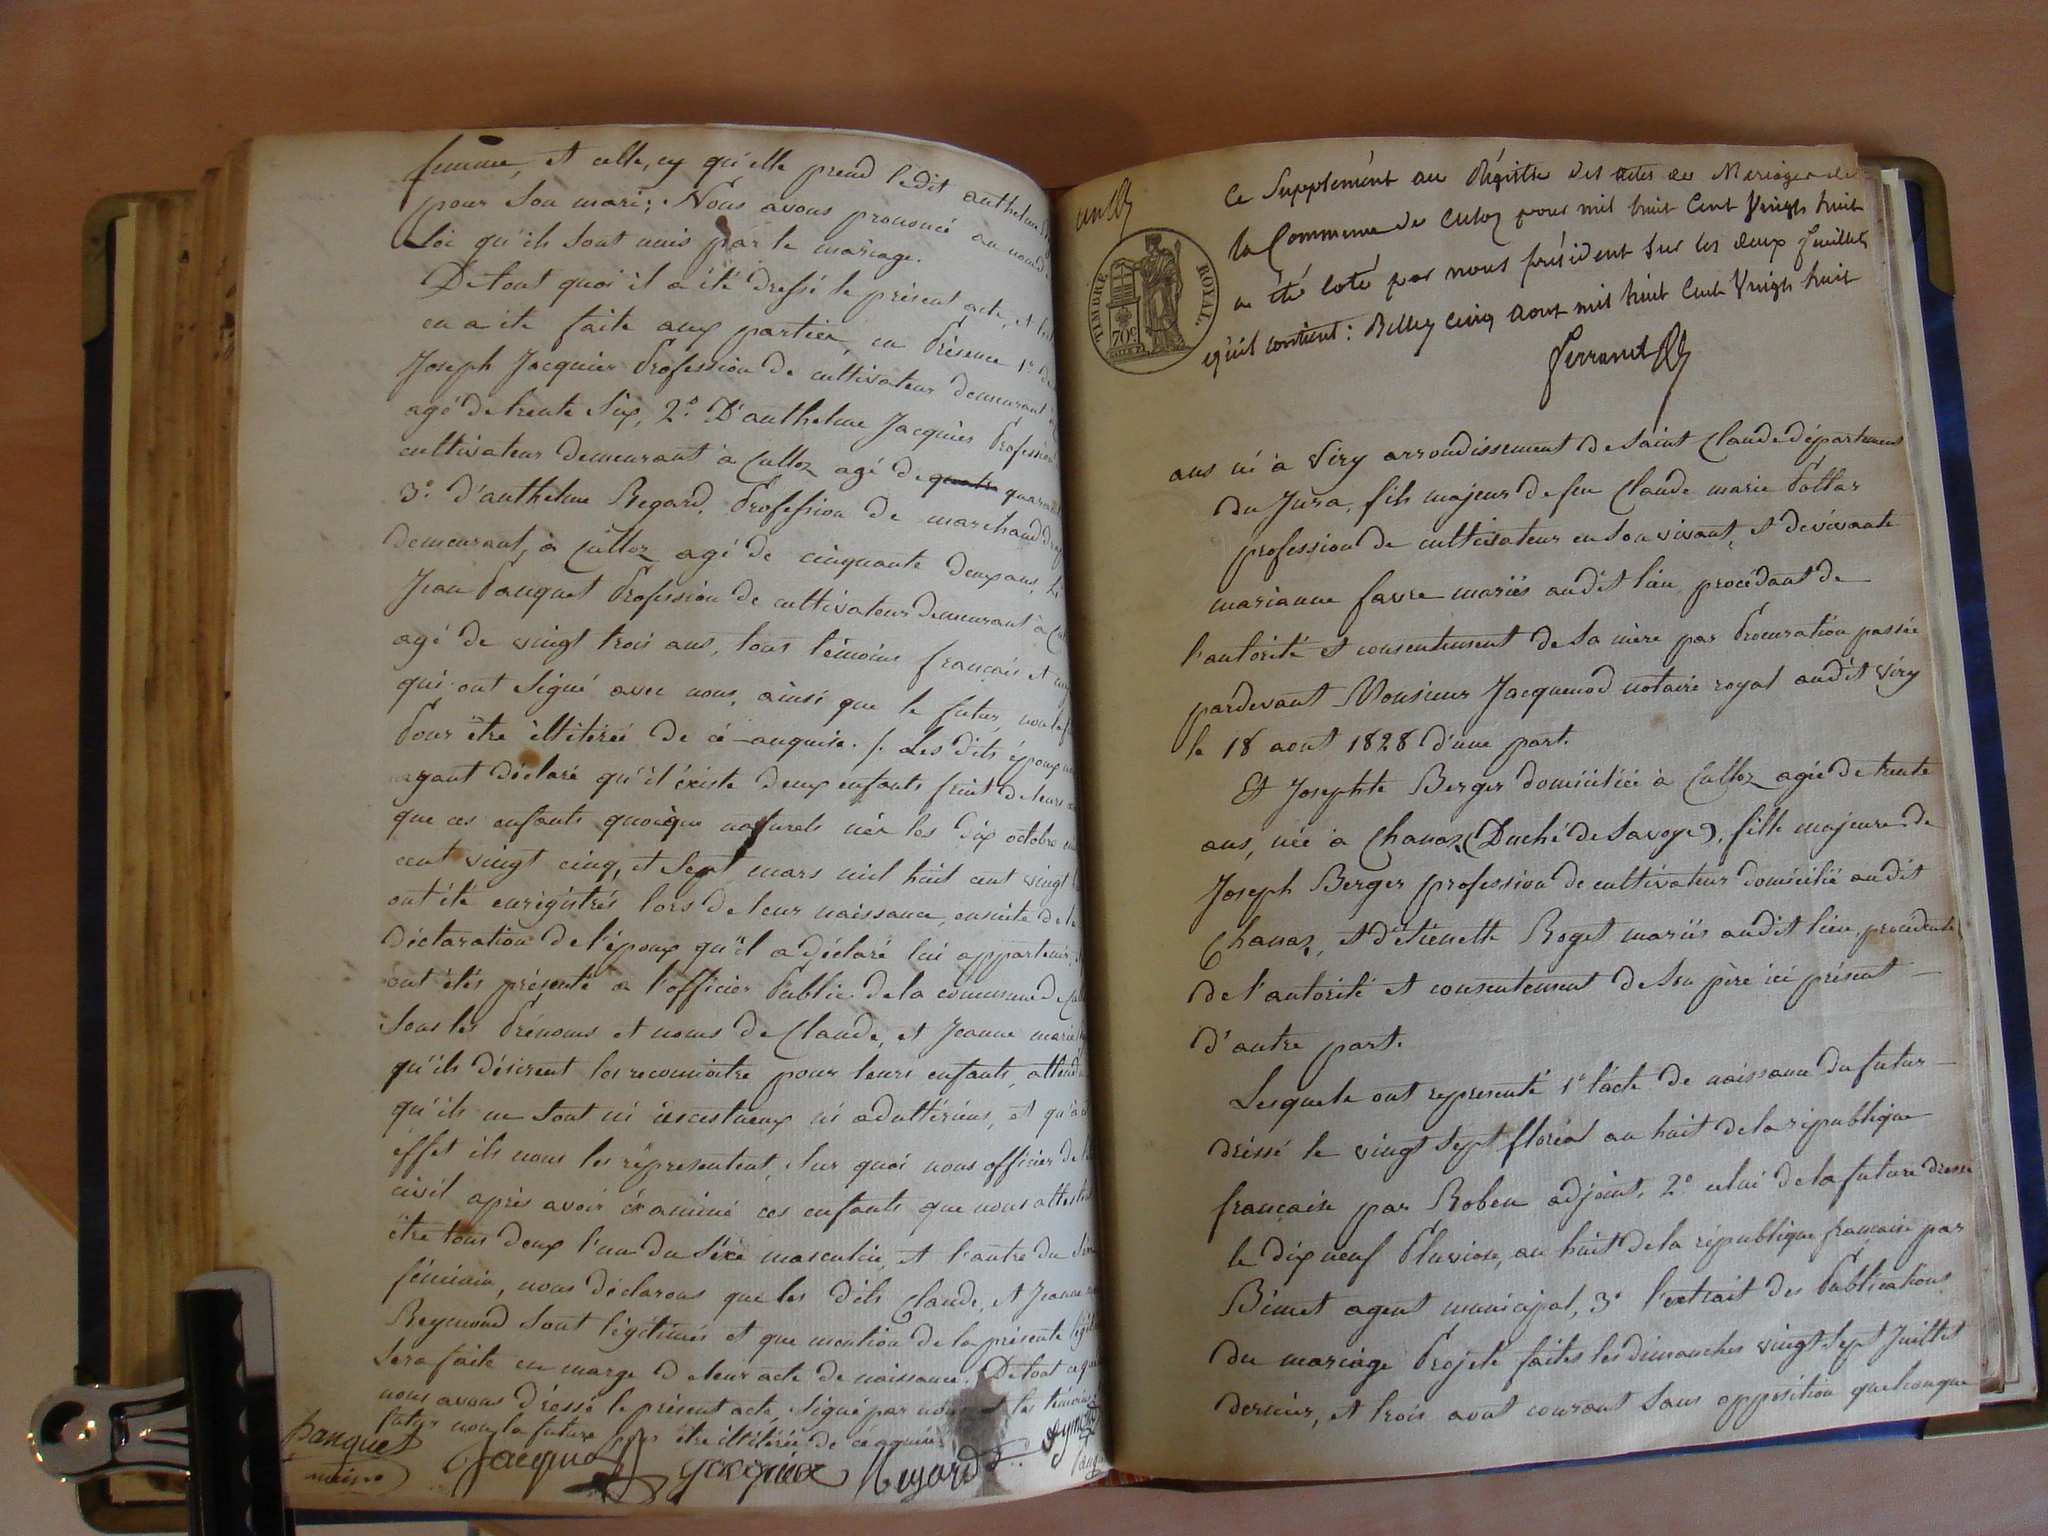 femme, et celle, cy qu'elle prend ledit anthelme
pour son mari; Nous avons prononcé au nom de
Loi qu'ils sont unis par le mariage.
De tout quoi il a été dressé le présent acte, et
en a ite faite aux parties, en Présence 1º. de
Joseph Jacquier Profession de cultivateur demeurant
agé de trente six, 2º. D'anthelme Jacquier Profession
cultivateur demeurant à Culloz agé de quatre quarante
3º. d'anthelme Regard, Profession de marchand
demeurant, à Culloz agé de cinquante deux ans,
Jean Pauquet Profession de cultivateur demeurant à
agé de vingt trois ans, tous témoins francais et
qui ont signé avec nous, ainsi que le futur, non la
Pour être illitérée de ce anquise. /. Les dits époux
ayant déclaré qu'il éxiste deux enfants fruit de leurs
que ces enfants quoique naturels nés les dix octobre
cent vingt cinq, et sept mars mil huit cent vingt
ont été enrégistrés lors de leur naissance, ensuite de la
déclaration de l'époux qu'il a déclaré lui appartenir,
ont étés présenté a l'officier Public de la commune de
sous les Prénoms et noms de Claude, et Jeanne marie
qu'ils désirent les reconnoitre pour leurs enfants, attendu
qu'ils ne sont ni incestueux ni adultérins, et qu'à
effet ils nous les représentent, sur quoi nous officier de
civil après avoir éxaminé ces enfants que nous attestons
être tous deux l'un du séxe masculin, et l'autre du
féminin, nous déclarons que les dits Claude, et Jeanne
Reymond sont légitimés et que mention de la présente
sera faite en marge de leur acte de naissance. De tout ce que
nous avons dressé le présent acte, signé par nous les témoins
futur non la future pour être illitérée de ce anquise
Pauquet Jacquier Jacquier Regard
maire
TIMBRE ROYAL.
70c
Ce Supplément au Régistre des actes de Mariages de
la Commune de Culoz pour mil huit Cent Vingt huit
a été coté par nous président sur les deux feuillets
qu'il contient: Belley cinq Aout mil huit Cent Vingt huit
Ferrand
ans né à Viry arrondissement de Saint Claude département
du Jura, fils majeur de feu Claude marie Pottar
profession de cultivateur en son vivant, et de vivante
marianne favre mariés audit lieu, procédant de
l'autorité et consentement de sa mère par Procuration passée
pardevant Monsieur Jacquenod notaire royal audit Viry
le 18 aout 1828 d'une part.
Et Josephte Berger domiciliée à Culloz agée de trente
ans, née à Chanaz (Duché de Savoye), fille majeure de
Joseph Berger profession de cultivateur domicilié audit
Chanaz, et d'étienette Roget mariés audit lieu, procédente
de l'autorité et consentement de son père ici présent
d'autre part.
Lesquels ont representé 1º l'acte de naissance du futur
dréssé le vingt sept floréal an huit de la république
francaise par Roben adjoint, 2º celui de la future dressé
le dix neuf Pluviose, an huit de la république francaise par
Bimet agent municipal, 3º l'extrait des Publications
du mariage Projeté faites les dimanches vingt sept Juillet
dernier, et trois aout courant sans opposition quelconque